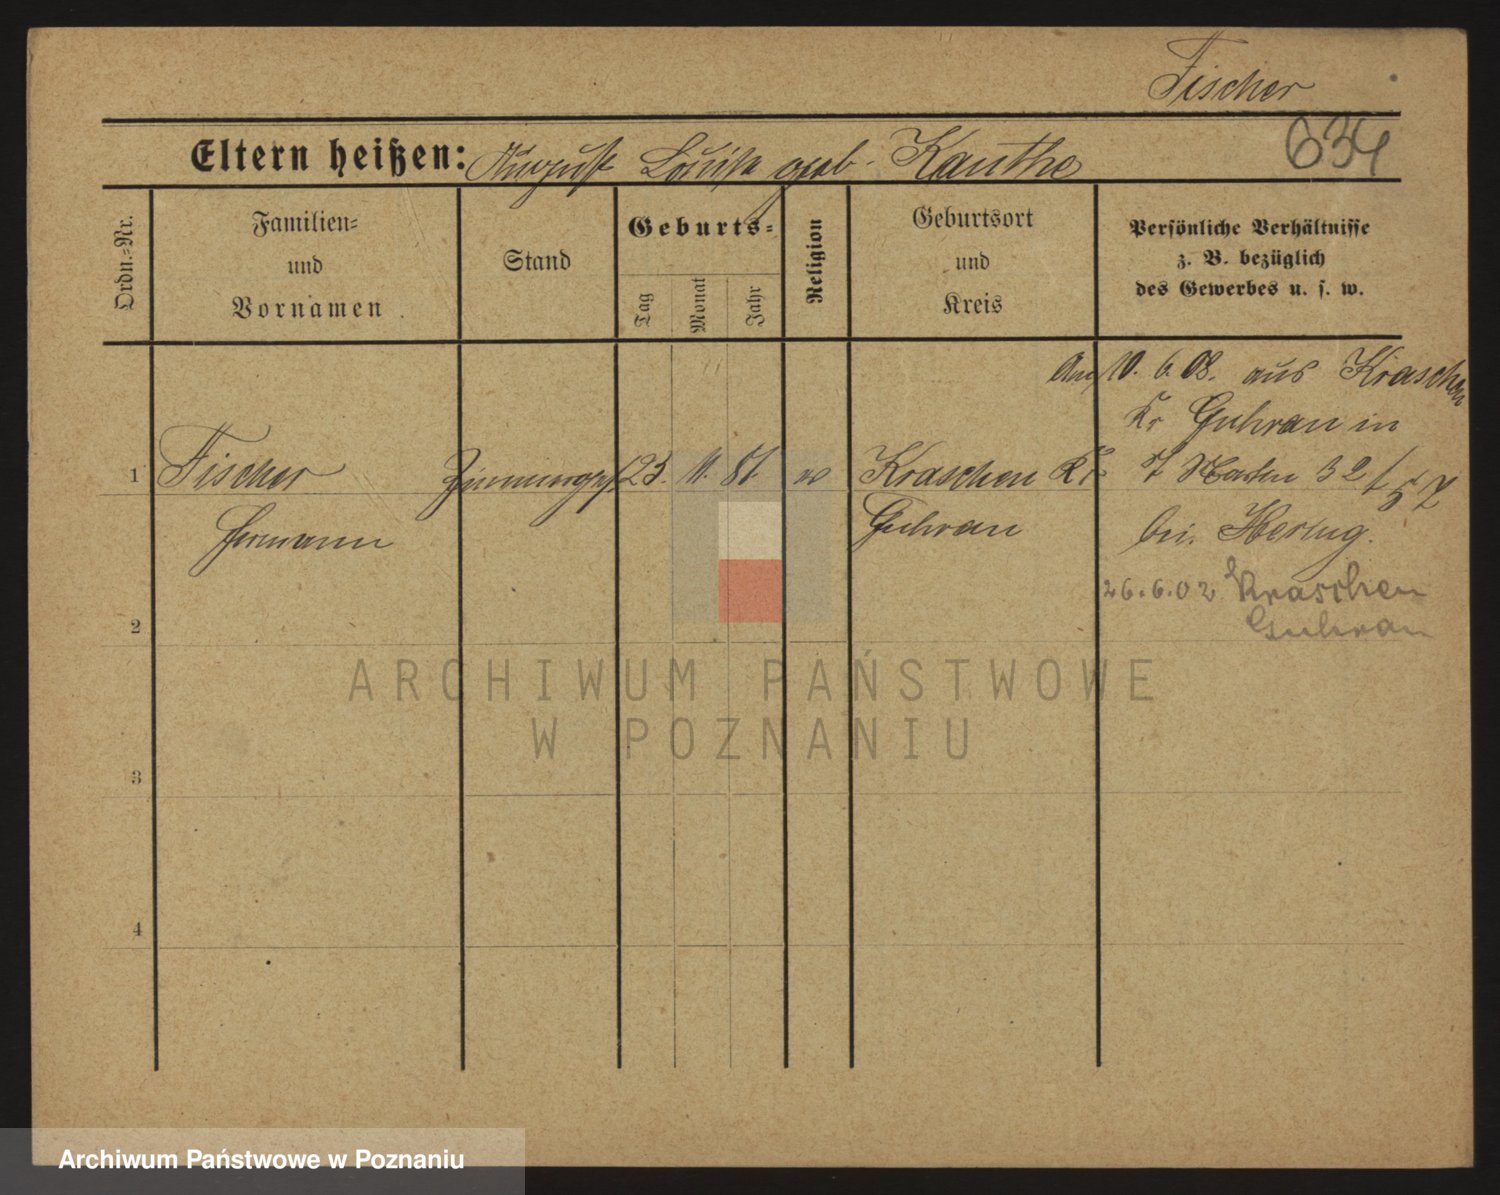 Fischer
634
Eltern heißen: August Louise geb. Kauthe
Ordn.-Nr.
Familien-
und
Vornamen
Stand
Geburts-
Tag
Monat
Jahr
Religion
Geburtsort
und
Kreis
Persönliche Verhältnisse
z. B. bezüglich
des Gewerbes u. s. w.
10. 6. 08. aus Kraschen
Kr Guhrau in
1 Fischer 23. 11. 81. Kraschen Kr
St Martin 32
Hermann Guhrau
bei Hertug.
26.6.02 Kraschen
Guhrau
2
3
4
ARCHIWUM PAŃSTWOWE
W POZNANIU
Archiwum Państwowe w Poznaniu